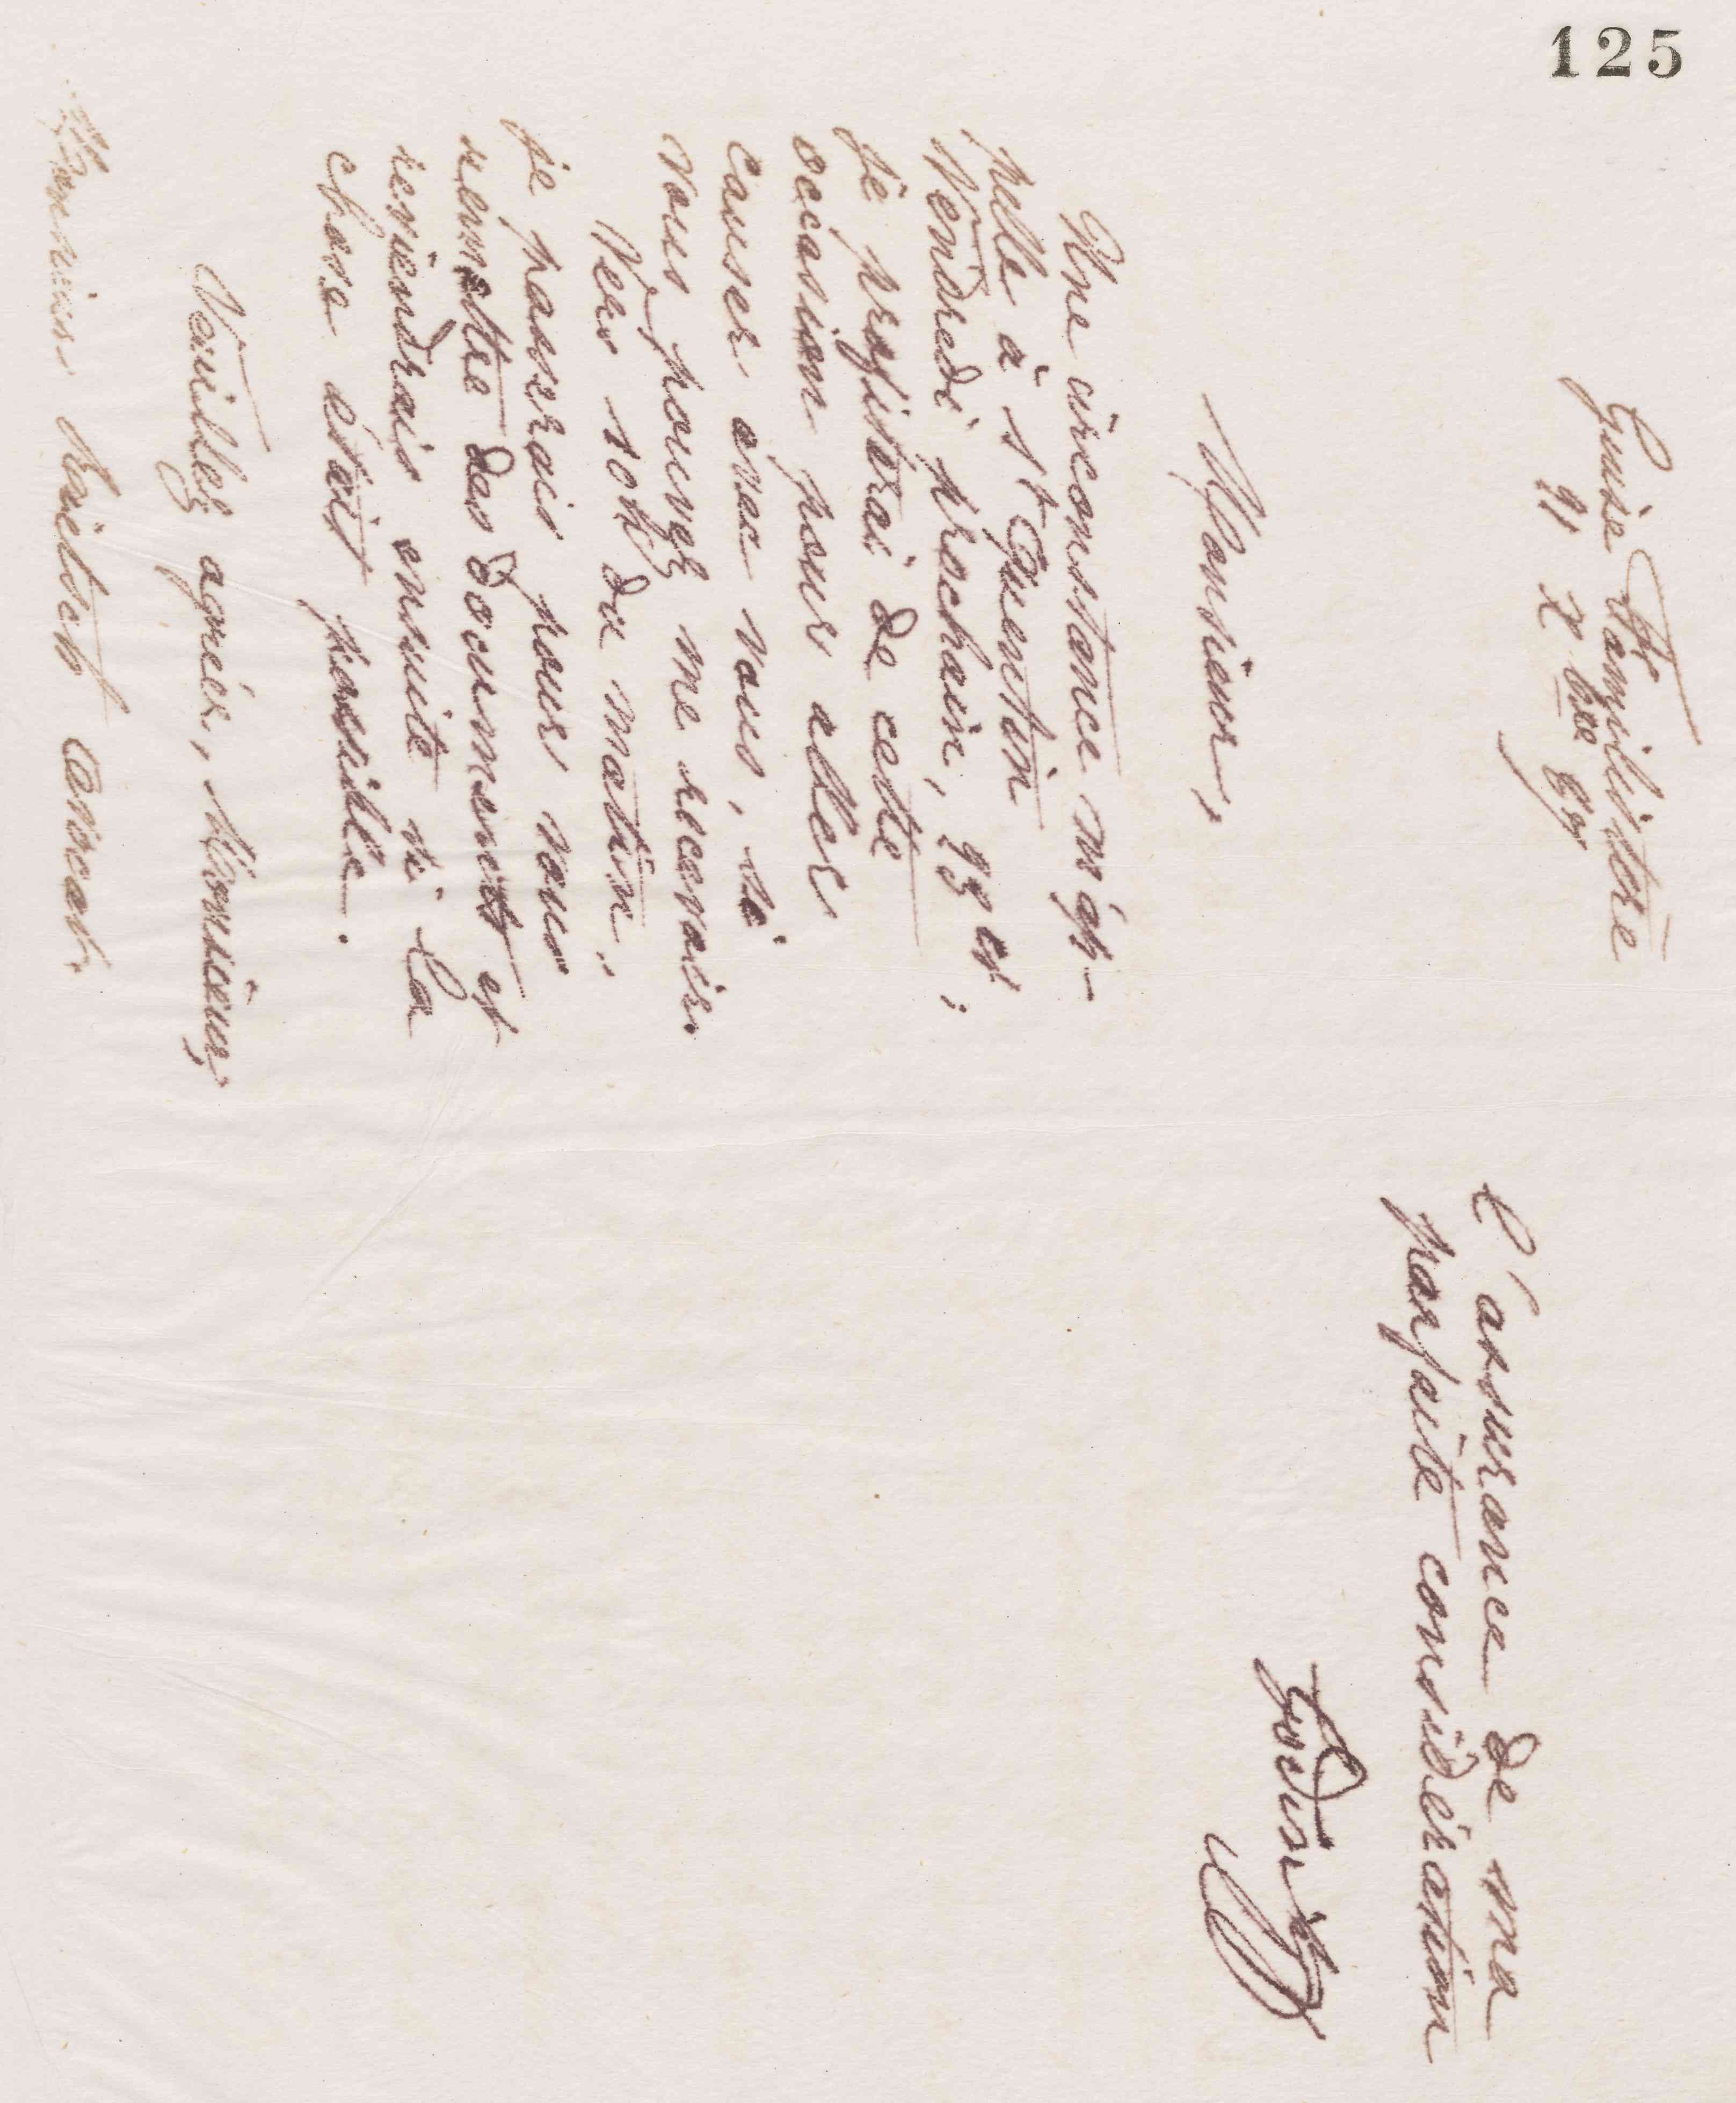 125
Guise Familistère
91 Xbre 89
Monsieur,
Une circonstance m'ap-
pelle à St Quentin
Vendredi prochain, 93 ct;
je profiterai de cette
occasion pour aller
causer avec vous, si
vous pouvez me recevoir
vers 10h du matin;
je passerais pour vous
remettre des documents et
reviendrais ensuite si la
chose était possible.
Veuillez agréer, Monsieur,
Monsieur avocat.
l'assurance de ma
parfaite considération
Godin